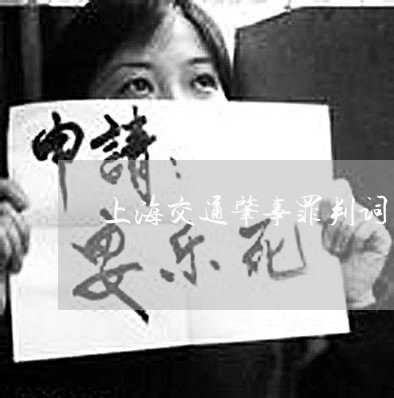 申請：
上海交通肇事罪判词
安乐死